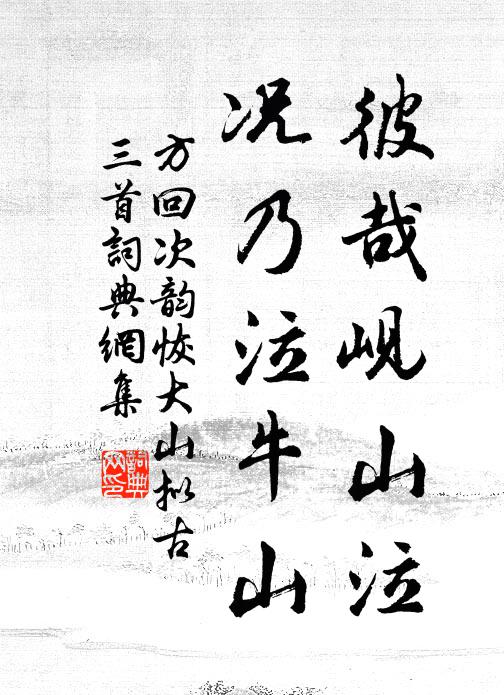 彼哉岘山泣
况乃泣牛山
方回次韵恢大山拟古
三首詞典網集
詞典网印